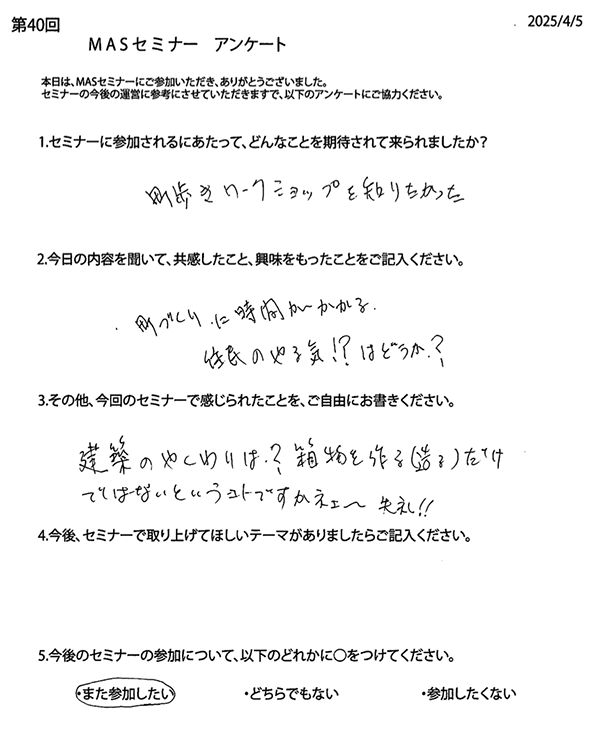 第40回
2025/4/5
MASセミナー アンケート
本日は、MASセミナーにご参加いただき、ありがとうございました。
セミナーの今後の運営に参考にさせていただきますで、以下のアンケートにご協力ください。
1.セミナーに参加されるにあたって、どんなことを期待されて来られましたか?
町歩きワークショップを知りたかった
2.今日の内容を聞いて、共感したこと、興味をもったことをご記入ください。
・町づくりに時間がかかる.
住民のやる気!?はどうか.?
3.その他、今回のセミナーで感じられたことを、ご自由にお書きください。
建築のやくわりは.?箱物を作る(造る)だけ
ではないというコトですかネェ〜 失礼!!
4.今後、セミナーで取り上げてほしいテーマがありましたらご記入ください。
5.今後のセミナーの参加について、以下のどれかに○をつけてください。
・また参加したい ・どちらでもない ・参加したくない